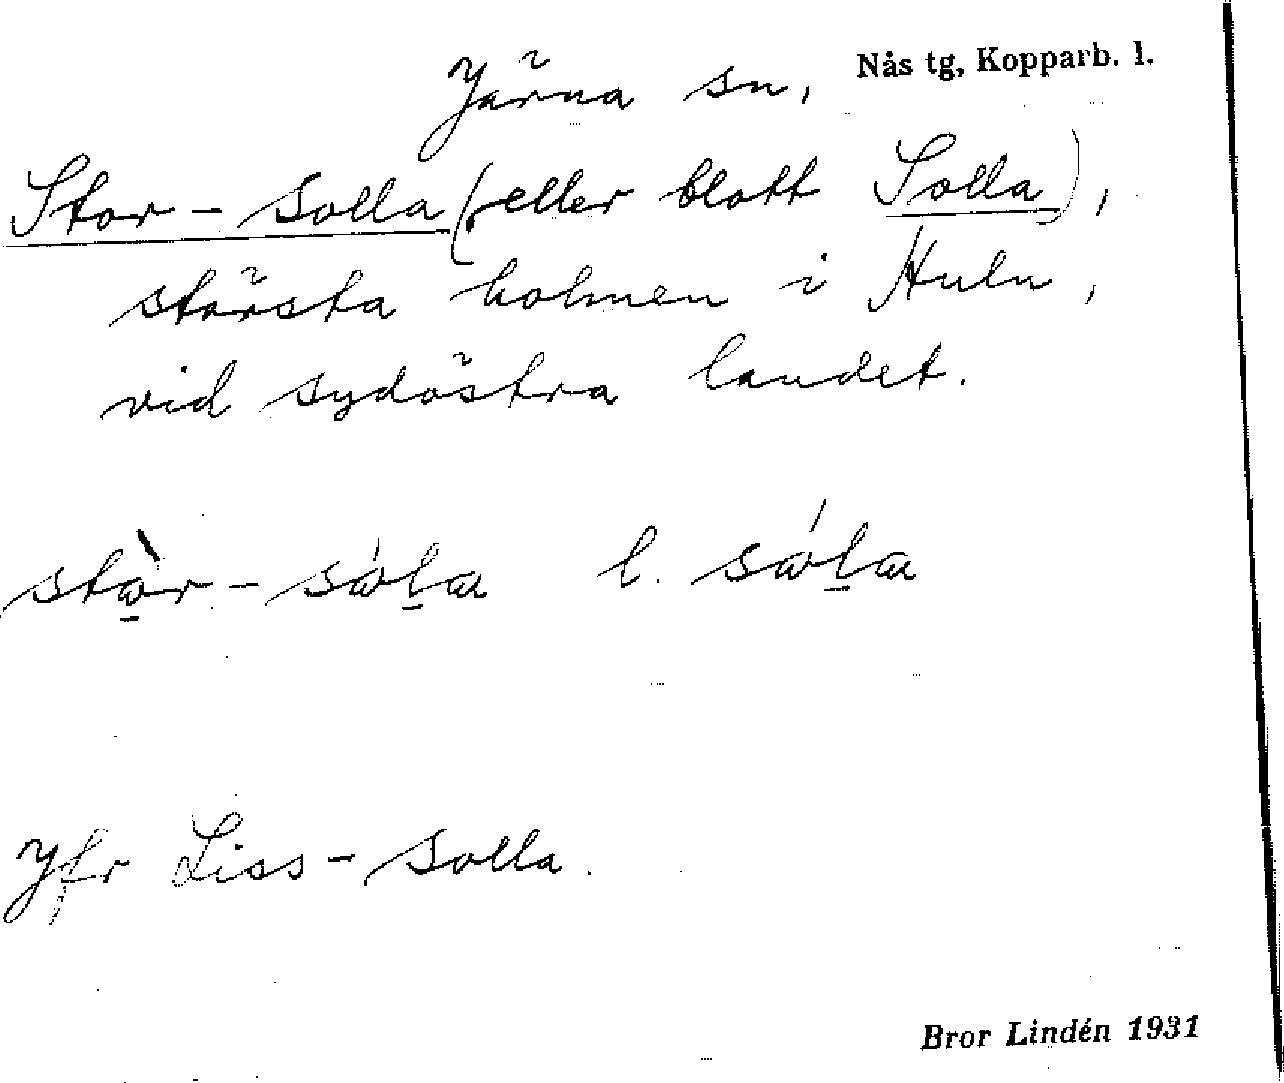 Järna sn, Nås tg, Kopparb. l.
Stor-solla (eller blott Solla),
största holmen i Huln,
vid sydöstra landet.
stò̠r-sóḷa l. sóḷa
Jfr Liss-solla.
Bror Lindén 1931